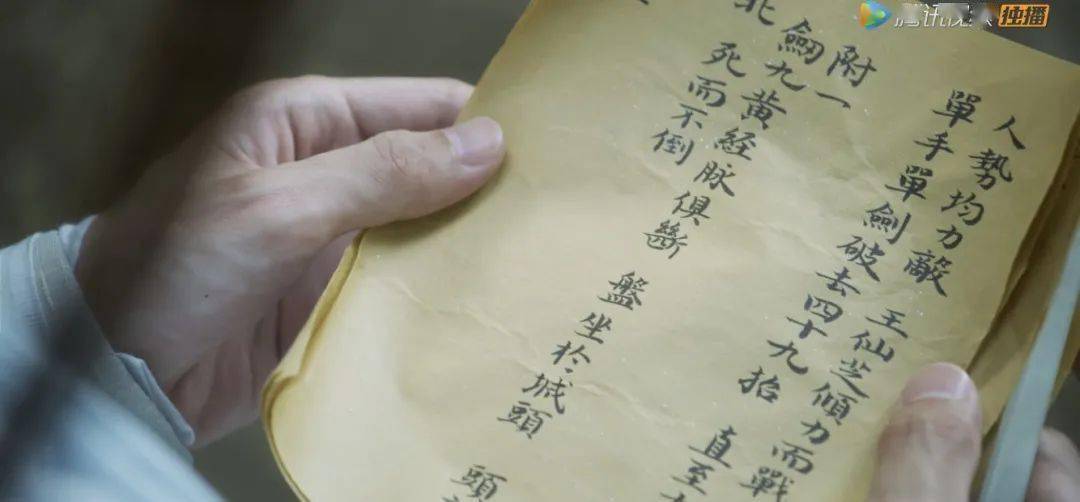 人勢均力敵 王仙芝傾力而戰
單手單劍破去四十九抬 直至
附一
劍九黃經脈俱斷 盤坐於城頭 頭
北 死而不倒
独播